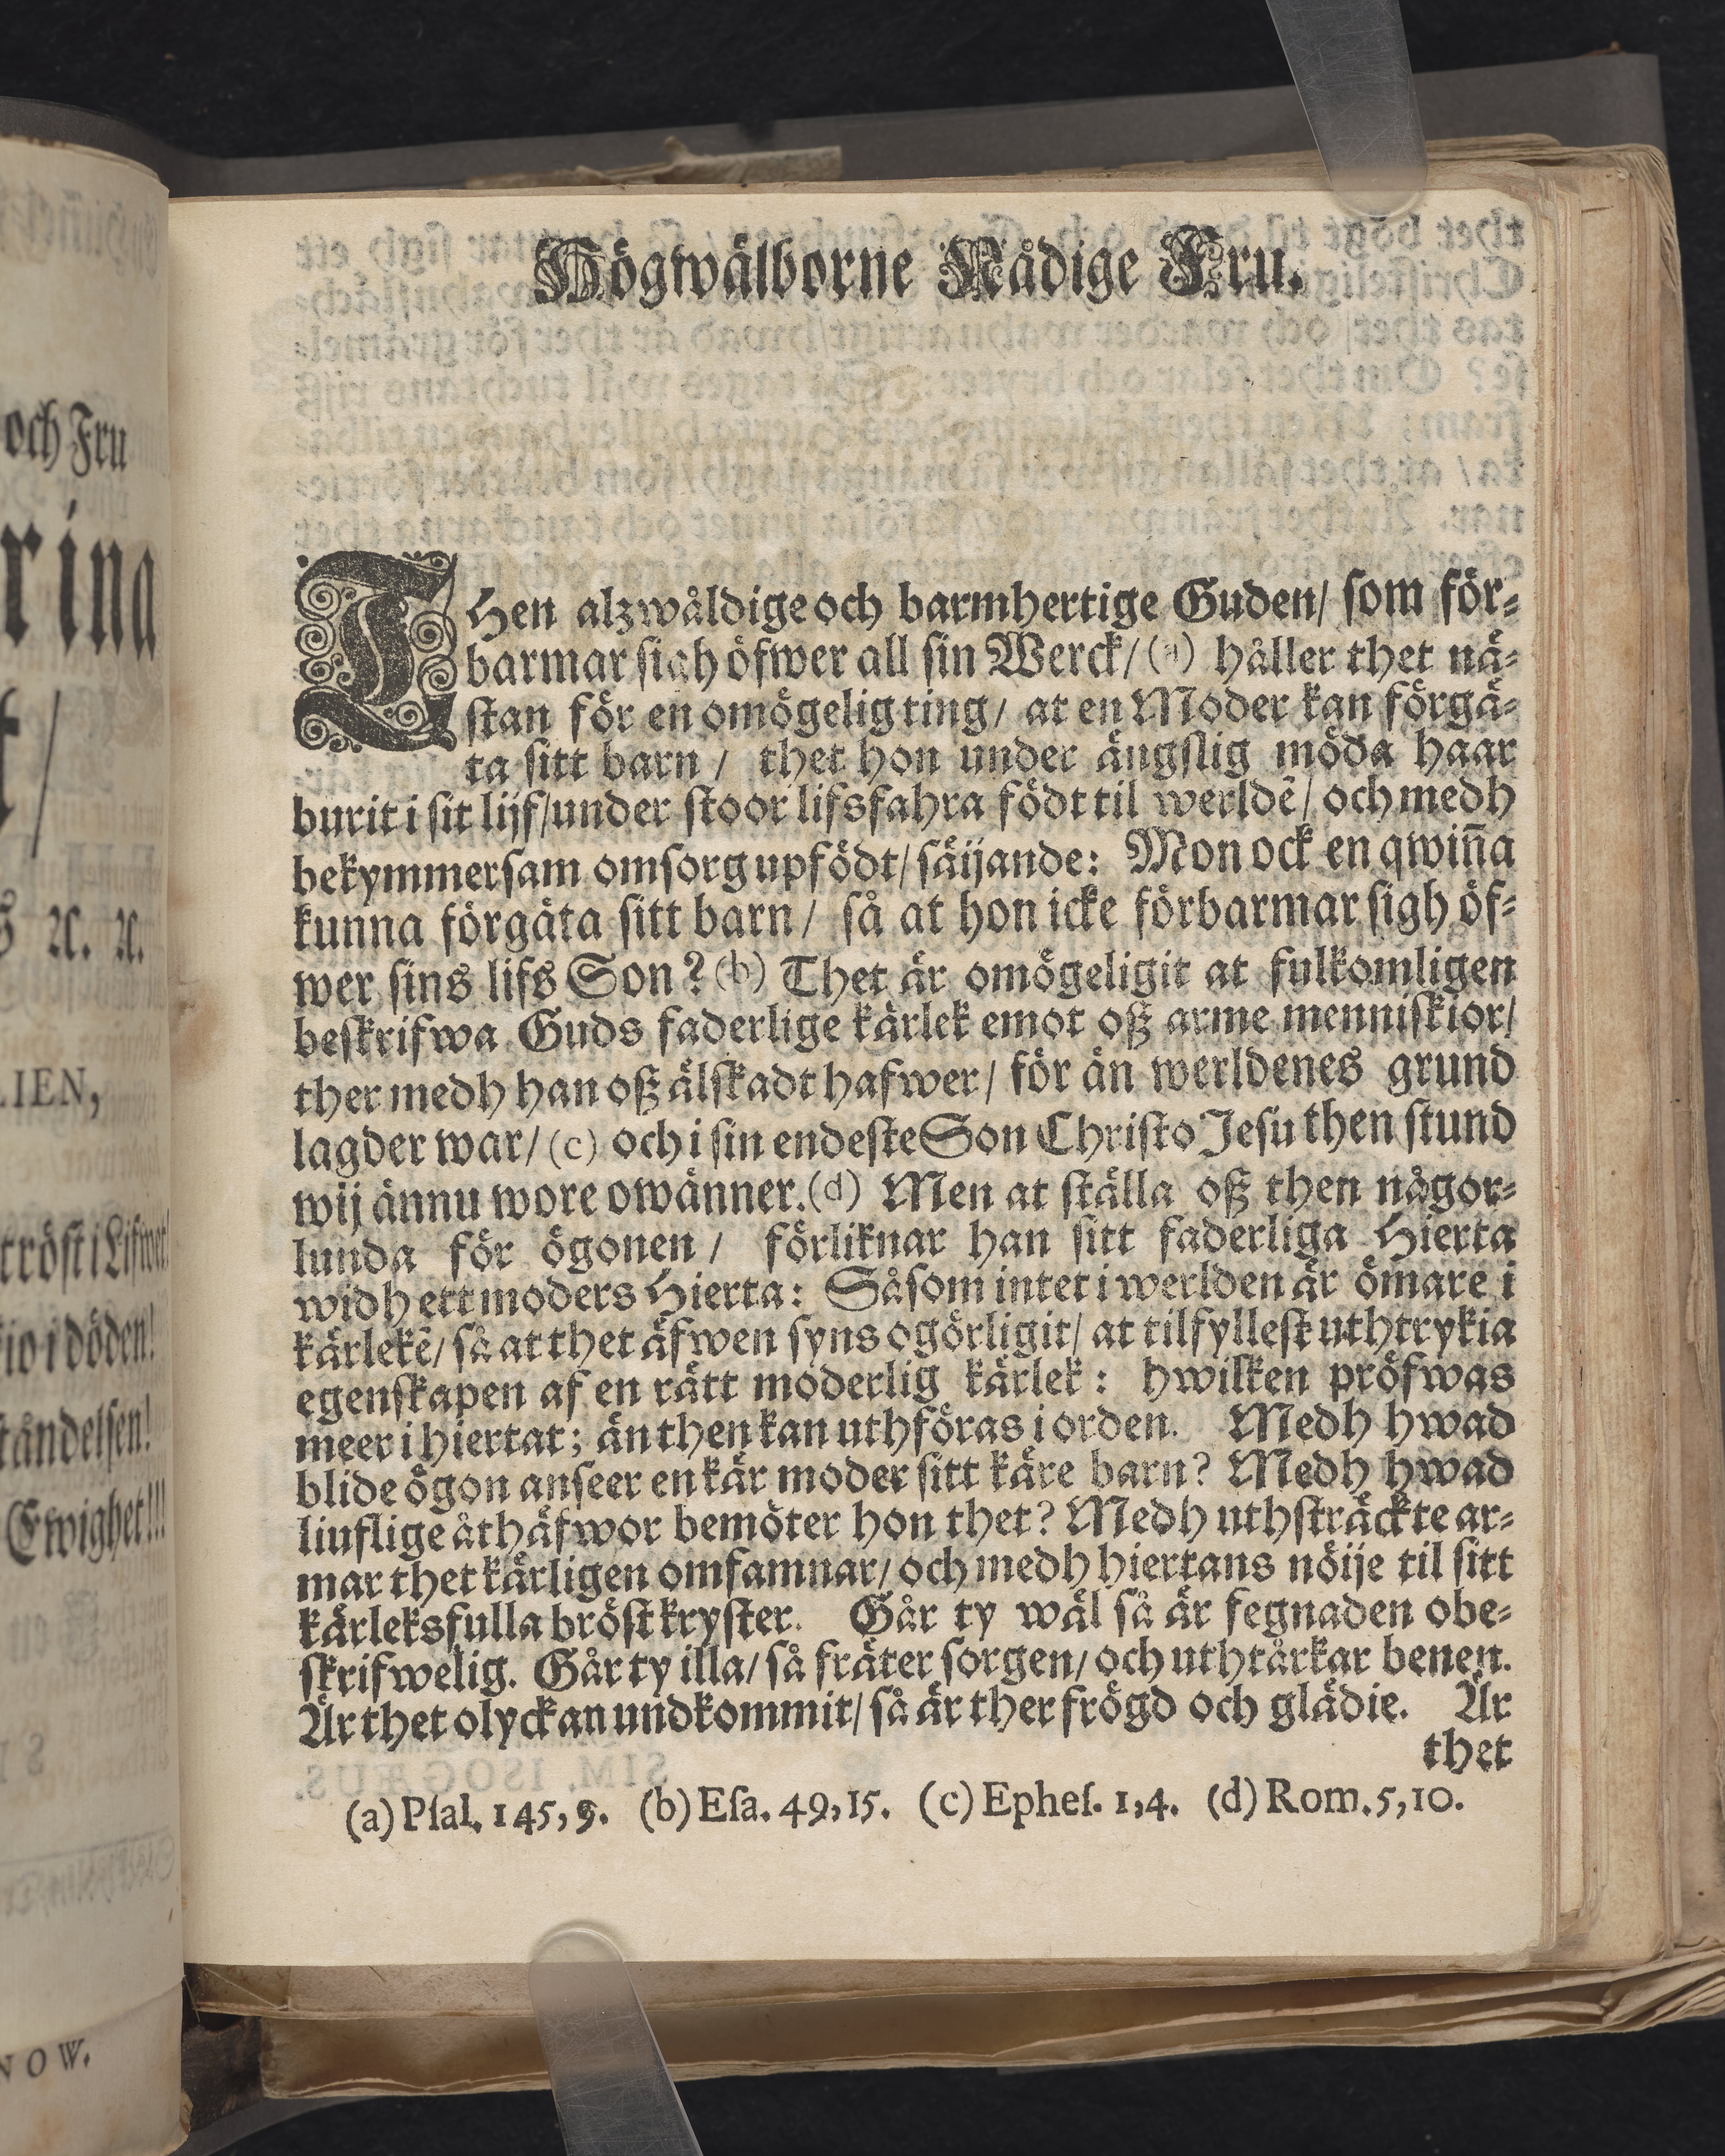 Högwälborne Nådige Fru.
THen alzwåldige och barmhertige Guden/ som för-
barmar sigh öfwer all sin Werck/ (a) håller thet nä-
stan för en omögelig ting/ at en Moder kan förgä-
ta sitt barn/ thet hon under ängslig möda haar
burit i sit lijf/under stoor lifsfahra födt til werldē/ och medh
bekymmersam omsorg upfödt/ säijande: Mon ock en qwin̄a
kunna förgäta sitt barn/ så at hon icke förbarmar sigh öf-
wer sins lifs Son? (b) Thet är omögeligit at fulkomligen
beskrifwa Guds faderlige kärlek emot oß arme menniskior/
ther medh han oß älskadt hafwer/ för än werldenes grund
lagder war/ (c) och i sin endeste Son Christo Jesu then stund
wij ännu wore owänner. (d) Men at ställa oß then någor-
lunda för ögonen/ förliknar han sitt faderliga Hierta
widh ett moders Hierta: Såsom intet i werlden är ömare i
kärlekē/ så at thet äfwen syns ogörligit/ at tilfyllest uthtrykia
egenskapen af en rätt moderlig kärlek: hwilken pröfwas
meer i hiertat; än then kan uthföras i orden. Medh hwad
blide ögon anseer en kär moder sitt käre barn? Medh hwad
liuflige åthäfwor bemöter hon thet? Medh uthsträckte ar-
mar thet kärligen omfamnar/ och medh hiertans nöije til sitt
kärleksfulla bröst kryster. Går ty wäl så är fegnaden obe-
skrifwelig. Går ty illa/ så fräter sorgen/ och uthtårkar benen.
Är thet olyckan undkommit/ så är ther frögd och glädie. Är
thet
(a) Psal. 145, 9. (b) Esa. 49, 15. (c) Ephes. 1, 4. (d) Rom. 5, 10.
och Fru
rina
LIEN,
tröst i Lifwet!
i döden!
Ewighet!!!
NOW.